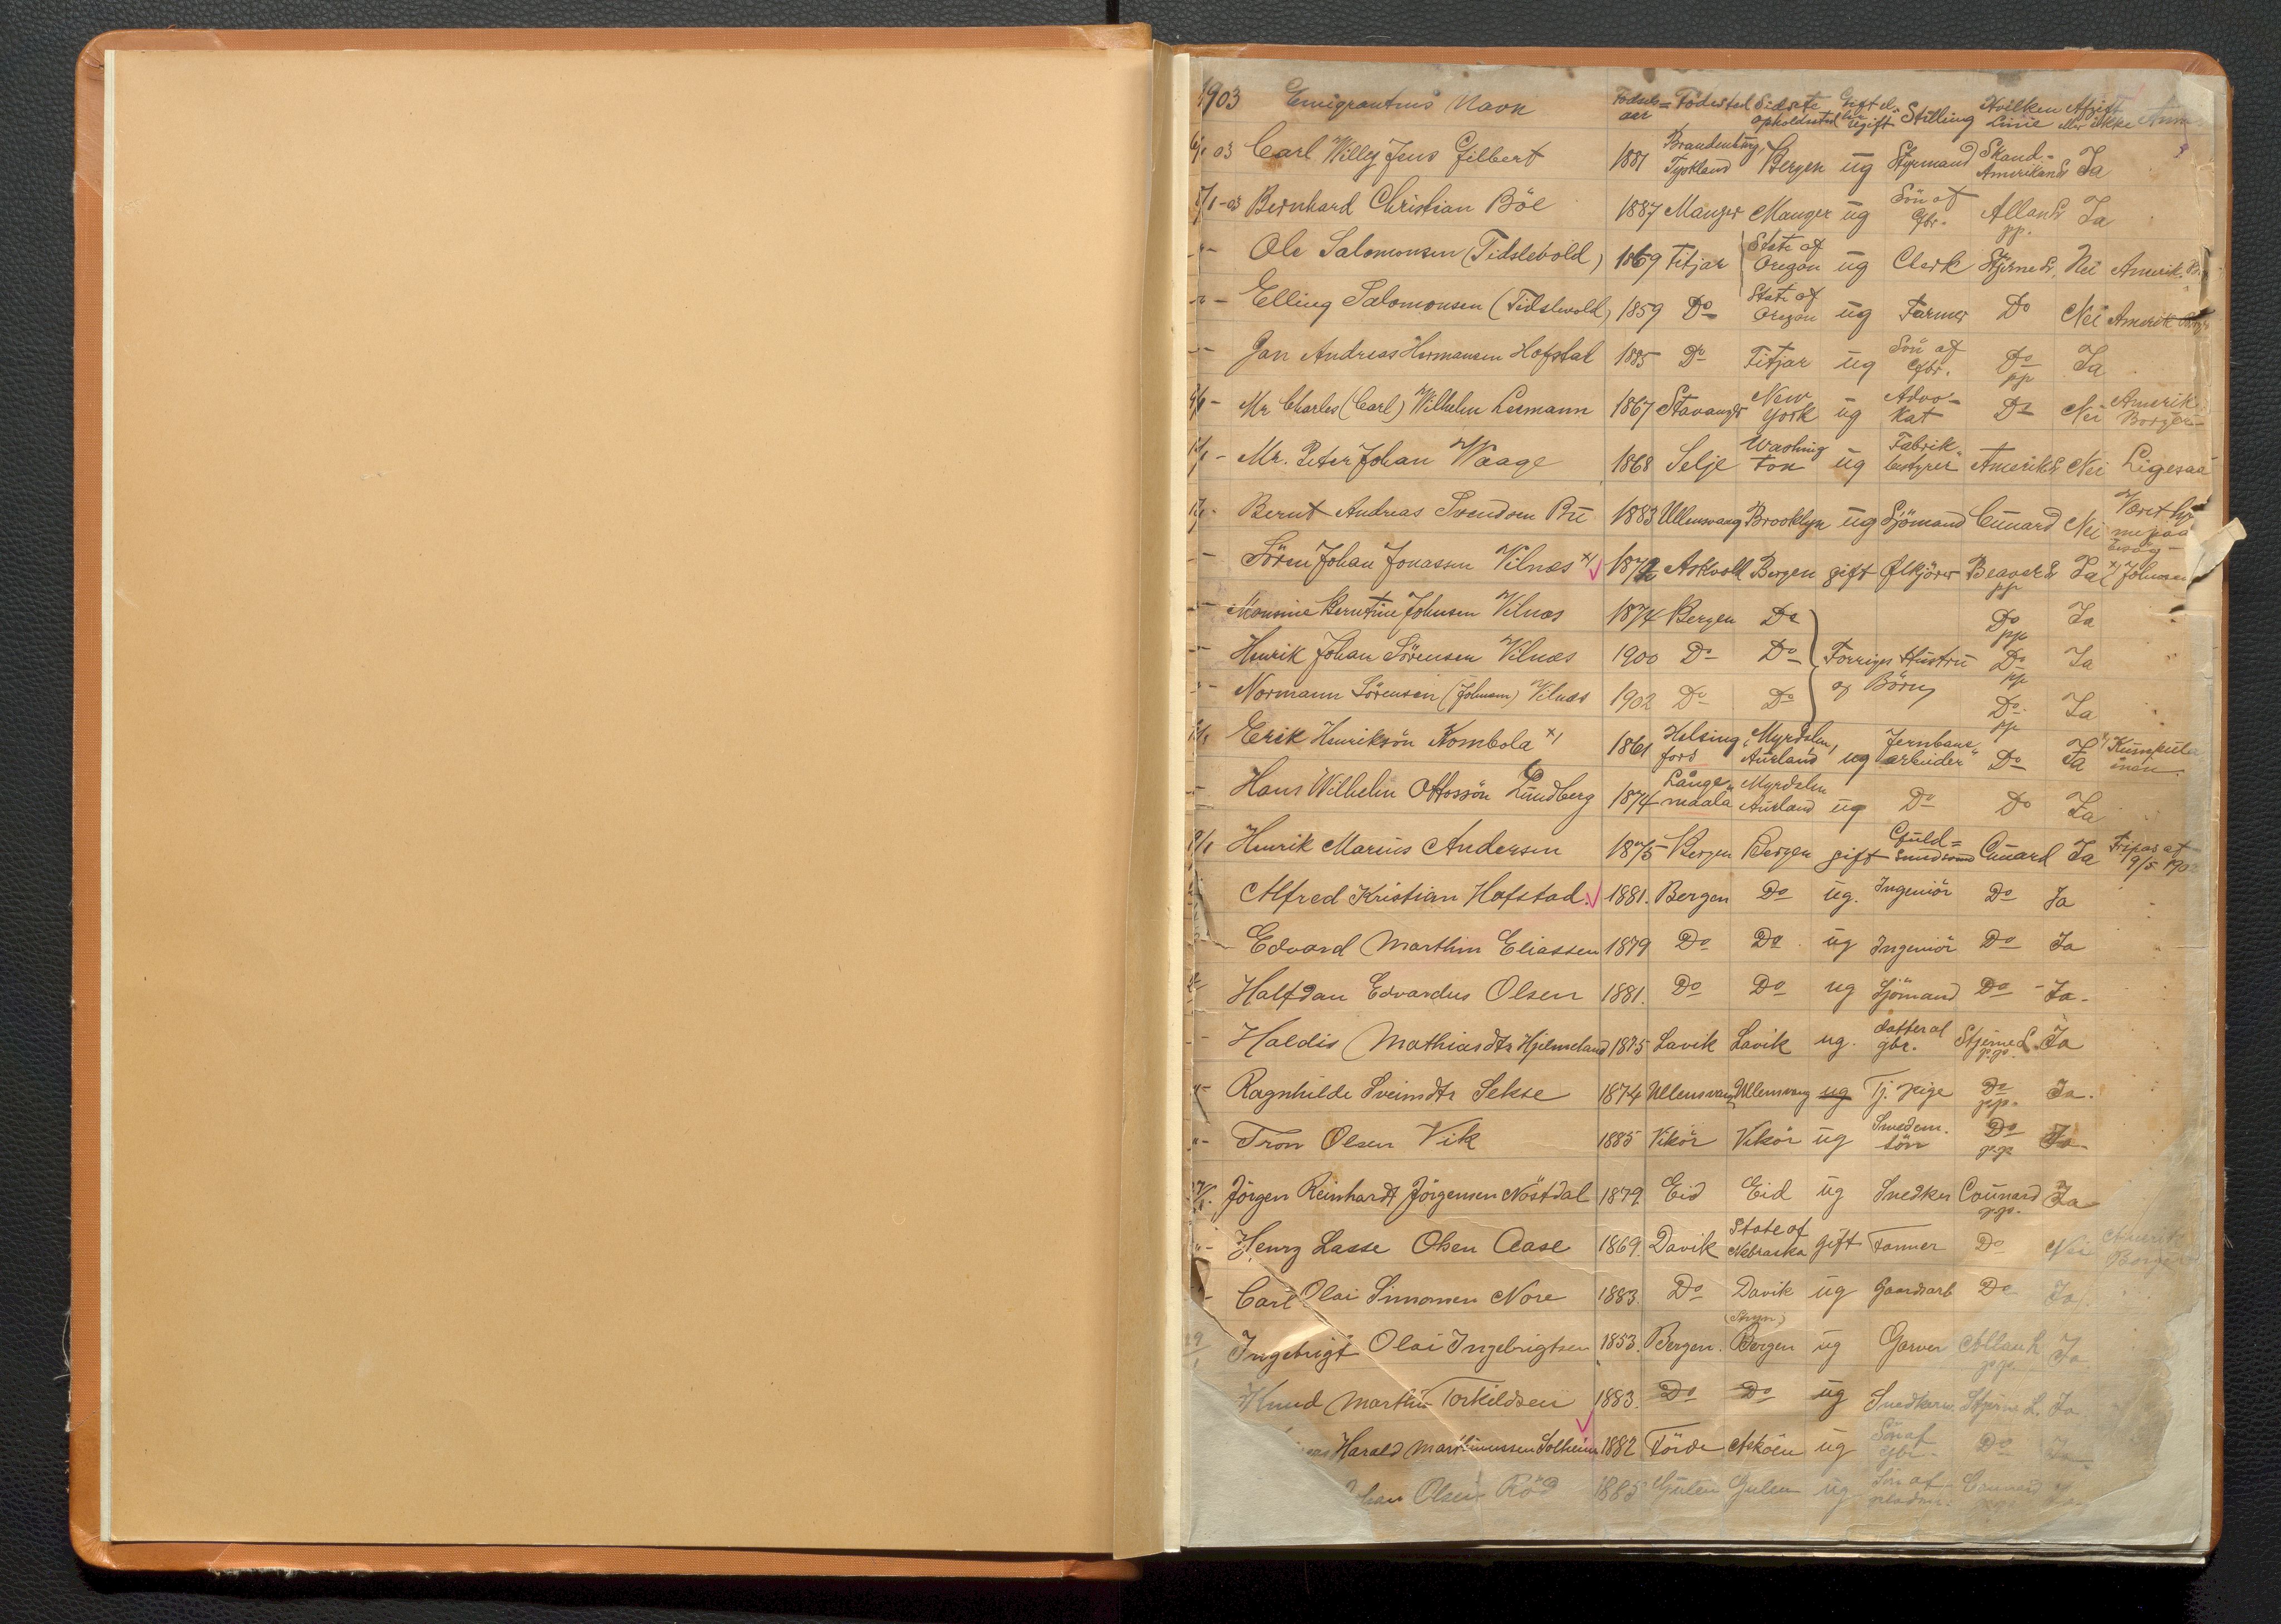 1903 Emigrantens Navn Födsels=aar Födested Sidste opholdssted Gift el. ugift Stilling Hvilken Linie Afgift eller ikke Anm.
6/1 03 Carl Willy Jens Gilbert 1881 Brandenburg, Tyskland Bergen ug Styrmand Skand-Amerikan L Ja
8/1-03 Bernhard Christian Böe 1887 Manger Manger ug Sön af Gbr. Allan L pp. Ja
-"- Ole Salomonsen (Tidslevold) 1869 Fitjar State of Oregon ug Clerk Stjerne L. Nei Amerik.
-"- Elling Salomonsen (Tidslevold) 1859 Do State of Oregon ug Farmer Do Nei Amerik.
-"- Jan Andreas Hermansen Hofstal 1885 Do Fitjar ug Sön af Gbr. Do pp Ja
9/1 - Mr Charles (Carl) Wilhelm Lexmann 1867 Stavanger New York ug Advo-kat Do Nei Amerik. Borger
- Mr. Peter Johan Waage 1868 Selje Washing ton ug Fabrik-bestyrer Amerik L Nei Ligesaa
- Bernt Andreas Svendsen Bu 1883 Ullensvang Brooklyn ug Sjömand Cunard Nei Været hjemme paa Besög
-"- Sören Johan Jonassen Vilnæs x) 1872 Askvoll Bergen gift Ølkjörer Beaver L pp Ja x) Johnsen
-"- Monsine Berntine Johnsen Vilnæs 1874 Bergen Do Do pp Ja
-"- Henrik Johan Sörensen Vilnæs 1900 Do Do Forriges Hustru Do pp Ja
-"- Normann Sörensen (Johnsen) Vilnæs 1902 Do Do og Börn Do pp Ja
Erik Henriksön Kombola x) 1861 Helsing fors Myrdalen, Aurland ug Jernbane-arbeider Do Ja x) Kumpula
-"- Hans Wilhelm Ottossön Lundberg 1874 Långe maala Myrdalen Aurland ug Do Do Ja
9/1 Henrik Marius Andersen 1875 Bergen Bergen gift Guld=smedsvend Cunard Ja Fripas af 19/5 1902
Alfred Kristian Hofstad. 1881. Bergen Do ug. Ingeniör Do Ja
Edvard Marthin Eliassen 1879 Do Do ug Ingeniör Do Ja
Halfdan Edvardus Olsen 1881. Do Do ug Sjömand Do Ja.
- Haldis Mathiasdtr Hjelmeland 1875 Lavik Lavik ug. datter af gbr. Stjerne L. p.p. Ja
"- Ragnhilde Sveimdtr Sekse 1874 Ullensvang Ullensvang ug Tj. pige Do p.p. Ja.
"- Tron Olsen Vik 1885 Vikör Vikör ug Smedem. sön Do p.p Ja
Jörgen Reinhardt Jörgensen Nöstdal 1879 Eid Eid ug Snedker Counard p.p. Ja
"- Henry Lasse Olsen Aase 1869. Davik State of Nebraska gift Farmer Do Nei Amerik Borger
Carl Olai Simonsen Nore 1883. Do Davik ug Gaardsarb Do Ja.
Ingebrigt Olai Ingebrigtsen 1853. Bergen. Bergen ug Garver Allan L p.p. Ja
Knud Marthin Torkildsen 1883. Do Do ug Snedkersv. Stjerne L. Ja
Harald Marthinussen Solheim 1882 Förde Asköen ug Sön af Gbr. Do Ja
Johan Olsen Röd 1885 Gulen Gulen ug Sön af Counard p.p. Ja